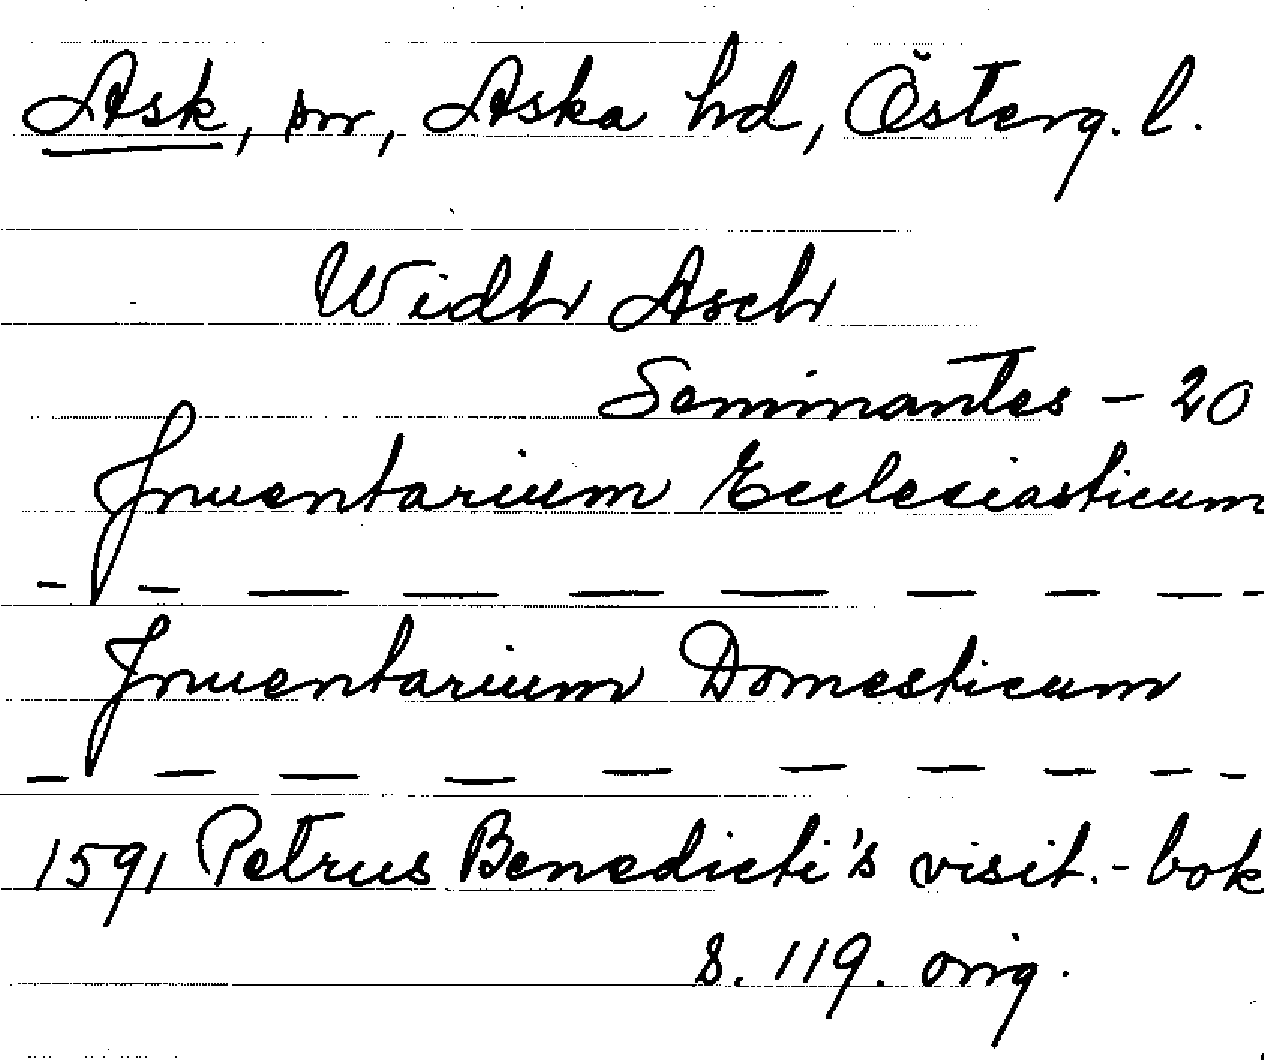 Ask, sn, Aska hd, Österg. l.
Widh Asch
Seminantes - 20
Inventarium Ecclesiasticum
- - - - - - - - - -
Inventarium Domesticum
- - - - - - - - - -
1591 Petrus Benedicti's visit.-bok
s. 119. orig.